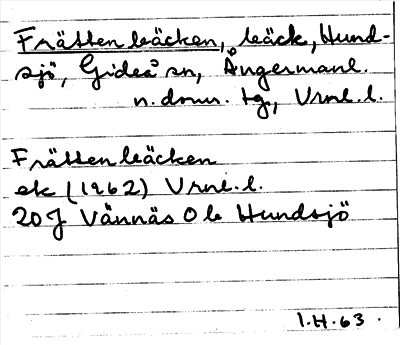 Frättenbäcken, bäck, Hund-
sjö, Gideå sn, Ångermanl.
n. dom. tg, Vrml. l.
Frättenbäcken
ek (1962) Vrml. l.
20J Vännäs Ob Hundsjö
I.H. 63.